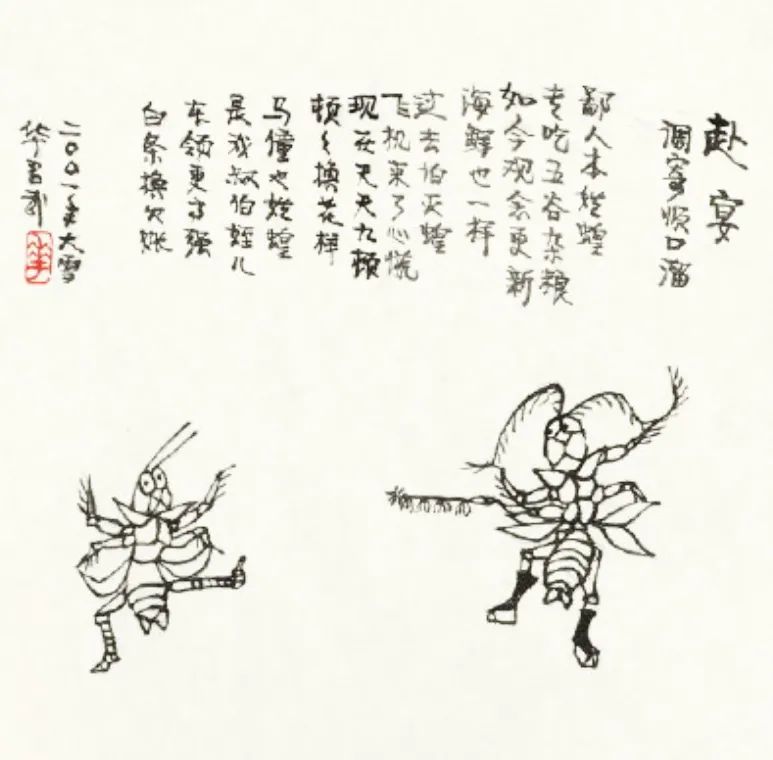 赴宴
调寄顺口溜
鄙人本姓蝗
专吃五谷杂粮
如今观念更新
海鲜也一样
过去怕灭蝗
飞机来了心慌
现在天天九顿
顿々换花样
马僮也姓蝗
是我叔伯侄儿
本领更高强
白条换欠账
二〇〇一年大雪
华君武